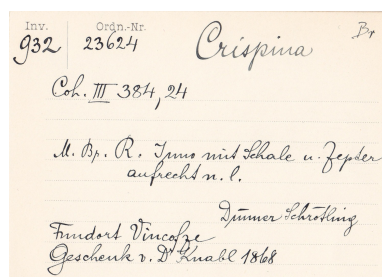 Inv. Ordn.-Nr.
932 23624 Crispina Br
Coh. III 384,24
M. Br. R. Juno mit Schale u. Zepter
aufrecht n. l.
Dünner Schrötling
Fundort
Geschenk v. Dr Knabl 1868